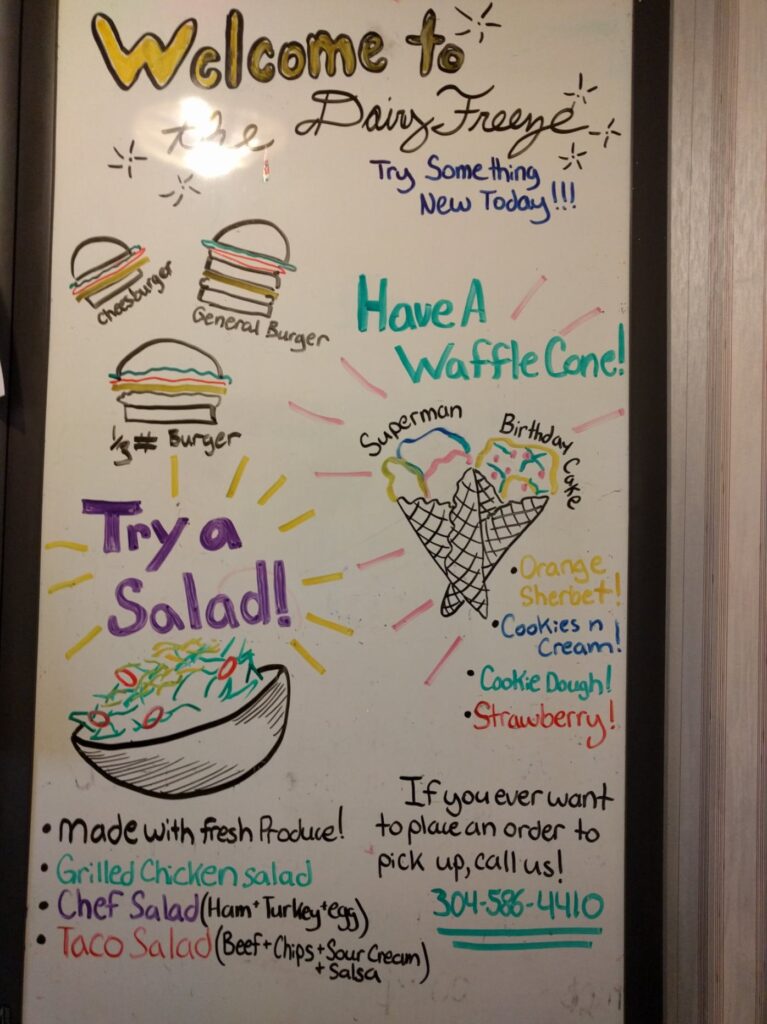 Welcome to
the Dairy Freeze
Try Something
New Today!!!
cheesburger
General Burger
1/3# Burger
Have A
Waffle Cone!
Superman
Birthday Cake
• Orange
Sherbet!
• Cookies n
Cream!
• Cookie Dough!
• Strawberry!
Try a
Salad!
• made with fresh Produce!
• Grilled Chicken salad
• Chef Salad (Ham+Turkey+egg)
• Taco Salad (Beef+Chips+Sour Cream
+Salsa)
If you ever want
to place an order to
pick up, call us!
304-586-4410